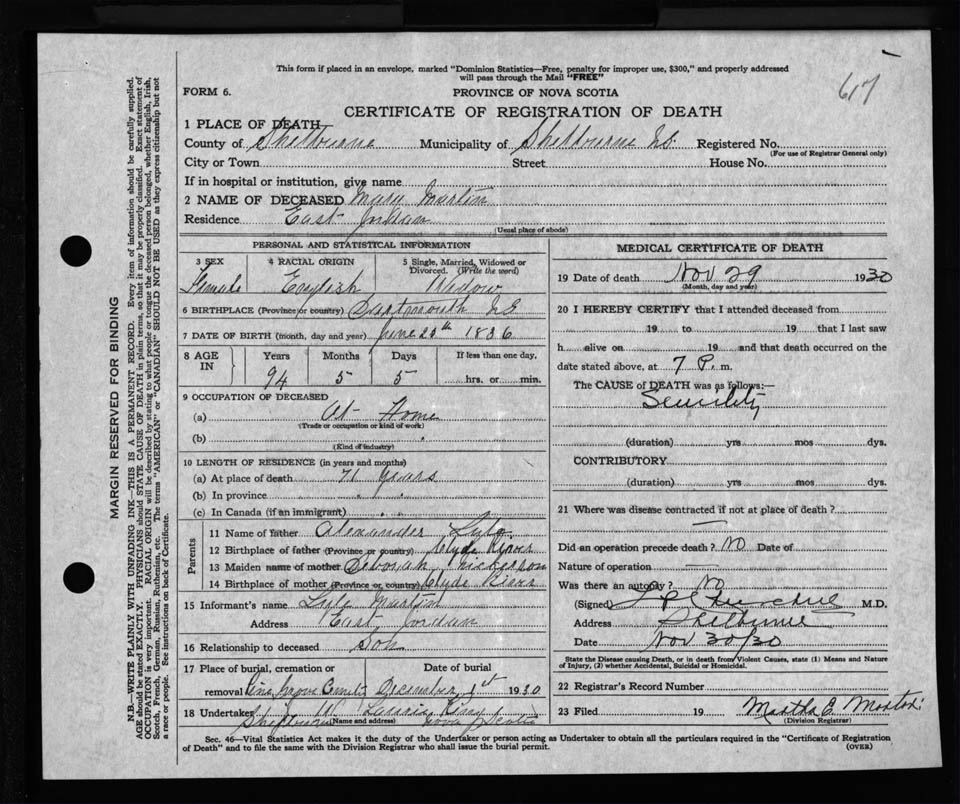 This form if placed in an envelope, marked "Dominion Statistics—Free, penalty for improper use, $300," and properly addressed
will pass through the Mail "FREE"
617
FORM 6.
PROVINCE OF NOVA SCOTIA
CERTIFICATE OF REGISTRATION OF DEATH
1 PLACE OF DEATH
County of Shelburne Municipality of Shelburne N.S. Registered No.
(For use of Registrar General only)
City or Town Street House No.
If in hospital or institution, give name
2 NAME OF DECEASED Mary Martin
Residence East Jordan
(Usual place of abode)
PERSONAL AND STATISTICAL INFORMATION
3 SEX 4 RACIAL ORIGIN 5 Single, Married, Widowed or Divorced. (Write the word)
Female English Widow
6 BIRTHPLACE (Province or country) Dartmouth N.S.
7 DATE OF BIRTH (month, day and year) June 23th 1836
8 AGE IN Years Months Days If less than one day,
94 5 5 hrs. or min.
9 OCCUPATION OF DECEASED
(a) At Home
(Trade or occupation or kind of work)
(b)
(Kind of industry)
10 LENGTH OF RESIDENCE (in years and months)
(a) At place of death 71 Years
(b) In province " "
(c) In Canada (if an immigrant)
Parents
11 Name of father Alexander Lyle
12 Birthplace of father (Province or country) Clyde River
13 Maiden name of mother Deborah Nickerson
14 Birthplace of mother (Province or country) Clyde River
15 Informant's name Lyle Martin
Address East Jordan
16 Relationship to deceased Son
17 Place of burial, cremation or removal Date of burial
Pine Grove December 1st 1930
18 Undertaker W. Laurie King
(Name and address)
Shelburne Nova Scotia
MEDICAL CERTIFICATE OF DEATH
19 Date of death Nov 29 1930
(Month, day and year)
20 I HEREBY CERTIFY that I attended deceased from
19 to 19 that I last saw
h alive on 19 and that death occurred on the
date stated above, at 7 P. m.
The CAUSE of DEATH was as follows:—
Senility
(duration) yrs mos dys.
CONTRIBUTORY
(duration) yrs mos dys.
21 Where was disease contracted if not at place of death?
—
Did an operation precede death? No Date of
Nature of operation —
Was there an autopsy? No
(Signed) M.D.
Address Shelburne
Date Nov 30/30
State the Disease causing Death, or in death from Violent Causes, state (1) Means and Nature
of Injury, (2) whether Accidental, Suicidal or Homicidal.
22 Registrar's Record Number
23 Filed 19 Martha E.
(Division Registrar)
Sec. 46—Vital Statistics Act makes it the duty of the Undertaker or person acting as Undertaker to obtain all the particulars required in the "Certificate of Registration
of Death" and to file the same with the Division Registrar who shall issue the burial permit.
(OVER)
MARGIN RESERVED FOR BINDING
N.B.—WRITE PLAINLY WITH UNFADING INK—THIS IS A PERMANENT RECORD. Every item of information should be carefully supplied.
AGE should be stated EXACTLY. PHYSICIANS should STATE CAUSE OF DEATH in plain terms, so that it may be properly classified. Exact statement of
OCCUPATION is very important. RACIAL ORIGIN will be described by stating to what people or tongue the deceased person belonged, whether English, Irish,
Scotch, French, German, Russian, Ruthenian, etc. The terms "AMERICAN" or "CANADIAN" SHOULD NOT BE USED as they express citizenship but not
a race or people. See instructions on back of Certificate.